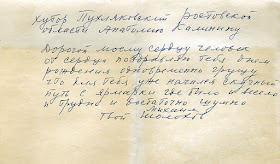 хутор Пухляковский Ростовской
области Анатолию Калинину
Дорогой моему сердцу человек
от сердца поздравляю тебя днем
рождения одновременно грущу
что для тебя уже начался скучный
путь с ярмарки где было и весело
и трудно и достаточно шумно
Твой Михаил
Шолохов